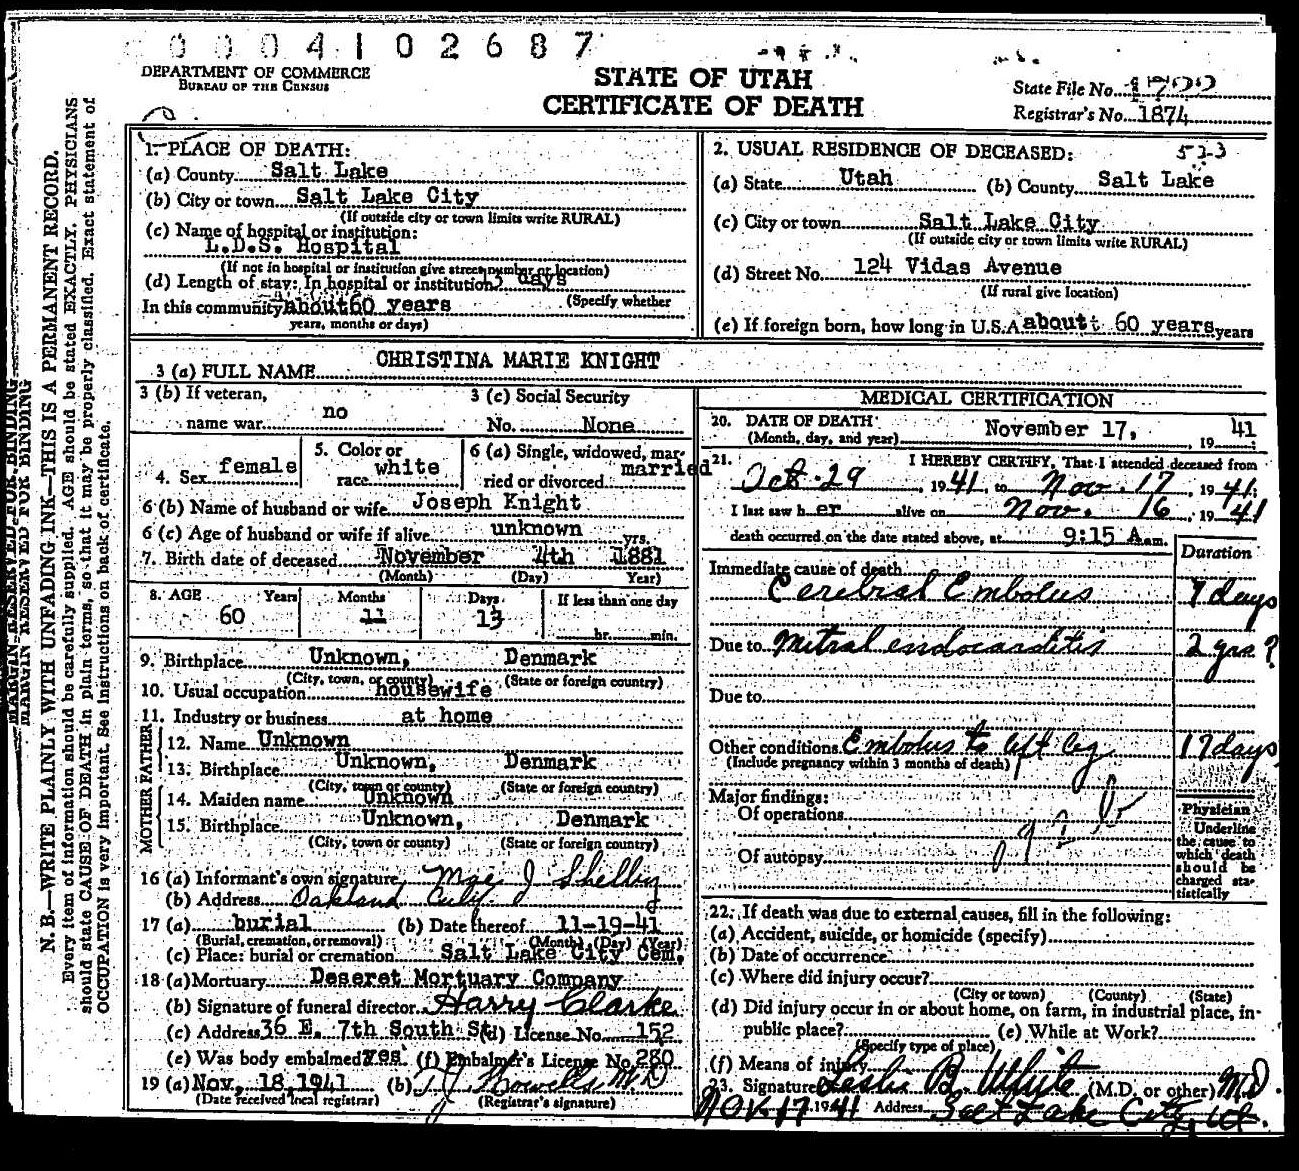 0004102687
DEPARTMENT OF COMMERCE
BUREAU OF THE CENSUS
STATE OF UTAH
CERTIFICATE OF DEATH
State File No.
Registrar's No. 1874
1. PLACE OF DEATH:
(a) County Salt Lake
(b) City or town Salt Lake City
(If outside city or town limits write RURAL)
(c) Name of hospital or institution:
L.D.S. Hospital
(If not in hospital or institution give street number or location)
(d) Length of stay: In hospital or institution days
(Specify whether
In this community about 60 years
years, months or days)
2. USUAL RESIDENCE OF DECEASED: 523
(a) State Utah (b) County Salt Lake
(c) City or town Salt Lake City
(If outside city or town limits write RURAL)
(d) Street No. 124 Vidas Avenue
(If rural give location)
(e) If foreign born, how long in U.S.A. about 60 years years
3 (a) FULL NAME CHRISTINA MARIE KNIGHT
3 (b) If veteran, 3 (c) Social Security
name war no No. None
4. Sex female 5. Color or race white 6 (a) Single, widowed, married or divorced married
6 (b) Name of husband or wife Joseph Knight
6 (c) Age of husband or wife if alive unknown yrs.
7. Birth date of deceased November 4th 1881
(Month) (Day) Year)
8. AGE Years Months Days If less than one day
60 11 13 hr. min.
9. Birthplace Unknown, Denmark
(City, town, or county) (State or foreign country)
10. Usual occupation housewife
11. Industry or business at home
FATHER
12. Name Unknown
13. Birthplace Unknown, Denmark
(City, town or county) (State or foreign country)
MOTHER
14. Maiden name Unknown
15. Birthplace Unknown, Denmark
(City, town or county) (State or foreign country)
16 (a) Informant's own signature J Shelby
(b) Address Oakland
17 (a) burial (b) Date thereof 11-19-41
(Burial, cremation, or removal) (Month) (Day) (Year)
(c) Place: burial or cremation Salt Lake City Cem.
18 (a) Mortuary Deseret Mortuary Company
(b) Signature of funeral director Harry Clarke
(c) Address 36 E. 7th South St. (d) License No. 152
(e) Was body embalmed? yes. (f) Embalmer's License No. 280
19 (a) Nov. 18, 1941 (b) M D
(Date received local registrar) (Registrar's signature)
MEDICAL CERTIFICATION
20. DATE OF DEATH
(Month, day, and year) November 17, 19 41
21. I HEREBY CERTIFY, That I attended deceased from
Oct. 29, 1941, to Nov. 17, 1941;
I last saw her alive on Nov. 16, 1941
death occurred on the date stated above, at 9:15 A.m.
Duration
Immediate cause of death
Cerebral Embolus 7 days
Due to Mitral endocarditis 2 yrs?
Due to
Other conditions Embolus to left leg 17 days
(Include pregnancy within 3 months of death)
Major findings:
Of operations
Of autopsy
Physician
Underline
the cause to
which death
should be
charged sta-
tistically
22. If death was due to external causes, fill in the following:
(a) Accident, suicide, or homicide (specify)
(b) Date of occurrence
(c) Where did injury occur?
(City or town) (County) (State)
(d) Did injury occur in or about home, on farm, in industrial place, in
public place? (e) While at Work?
(Specify type of place)
(f) Means of injury
23. Signature Leslie B. White (M.D. or other) M.D.
NOV 17 1941 Address Salt Lake City, Ut.
MARGIN RESERVED FOR BINDING
MARGIN RESERVED FOR BINDING
N. B.—WRITE PLAINLY WITH UNFADING INK—THIS IS A PERMANENT RECORD.
Every item of information should be carefully supplied. AGE should be stated EXACTLY. PHYSICIANS
should state CAUSE OF DEATH in plain terms, so that it may be properly classified. Exact statement of
OCCUPATION is very important. See instructions on back of certificate.